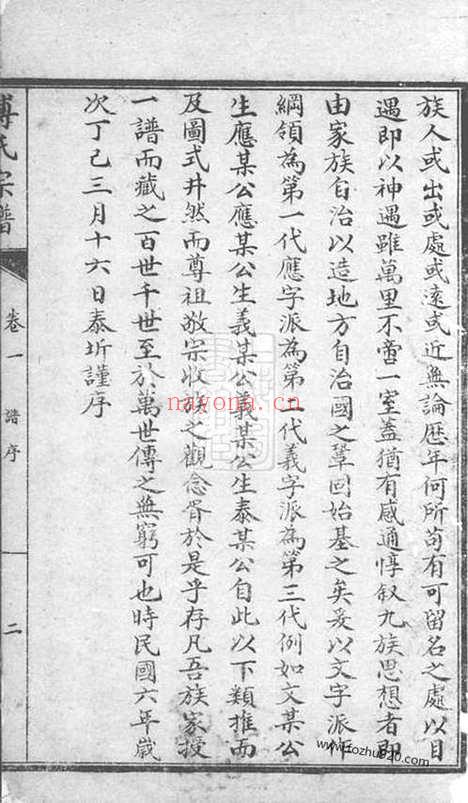 族人或出或處或遠或近無論歷年何所苟有可留名之處以目
遇即以神遇雖萬里不啻一室蓋猶有感通惇叙九族思想者即
由家族自治以造地方自治國之鞏固始基之矣爰以文字派作
綱領為第一代應字派為第二代義字派為第三代例如文某公
生應某公應某公生義某公義某公生泰某公自此以下類推而
及圖式井然而尊祖敬宗收族之觀念胥於是乎存凡吾族家授
一譜而藏之百世千世至於萬世傳之無窮可也時民國六年歲
次丁巳三月十六日泰圻謹序
傅氏宗譜
卷一 譜序
二
nayona.cn
www.tozhu920.com